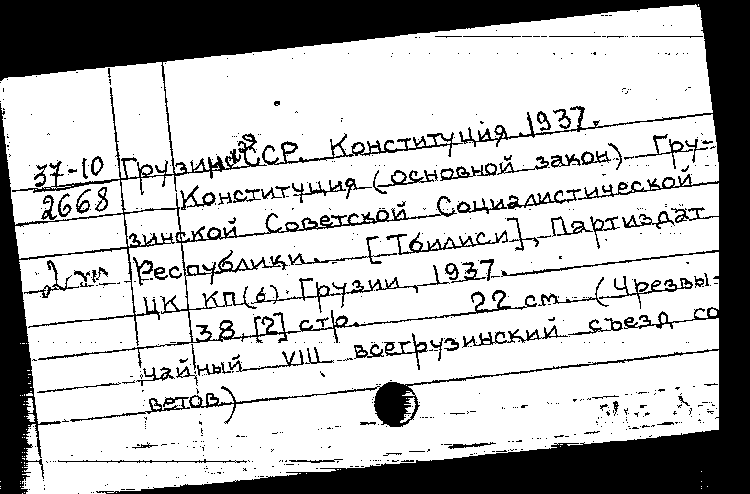 37-10 Грузинская ССР. Конституция. 1937.
2668 Конституция (основной закон) Гру-
зинской Советской Социалистической
Республики. [Тбилиси], Партиздат
ЦК КП(б) Грузии, 1937.
38, [2] стр. 22 см. (Чрезвы-
чайный VIII всегрузинский съезд со
ветов)